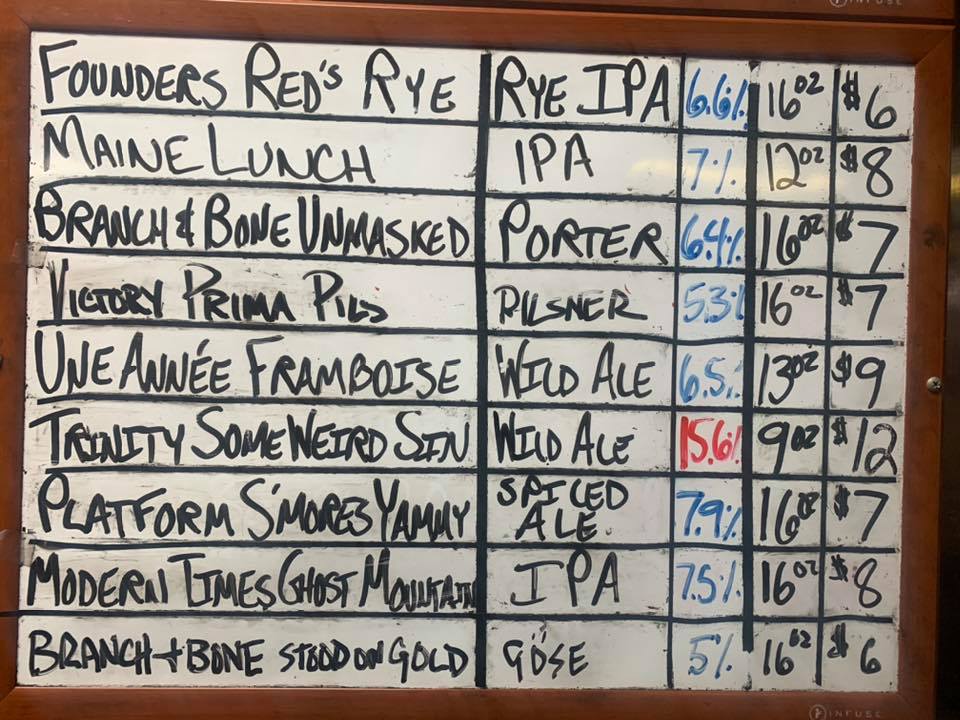 INFUSE
FOUNDERS RED'S RYE RYE IPA 6.6% 16OZ $6
MAINE LUNCH IPA 7% 12OZ $8
BRANCH & BONE UNMASKED PORTER 6.4% 16OZ $7
VICTORY PRIMA PILS PILSNER 5.3% 16OZ $7
UNE ANNÉE FRAMBOISE WILD ALE 6.5% 13OZ $9
TRINITY SOME WEIRD SIN WILD ALE 15.6% 9OZ $12
PLATFORM S'MORES YAMMY SPICED ALE 7.9% 16OZ $7
MODERN TIMES GHOST MOUNTAIN IPA 7.5% 16OZ $8
BRANCH + BONE STOOD ON GOLD GÖSE 5% 16OZ $6
INFUSE